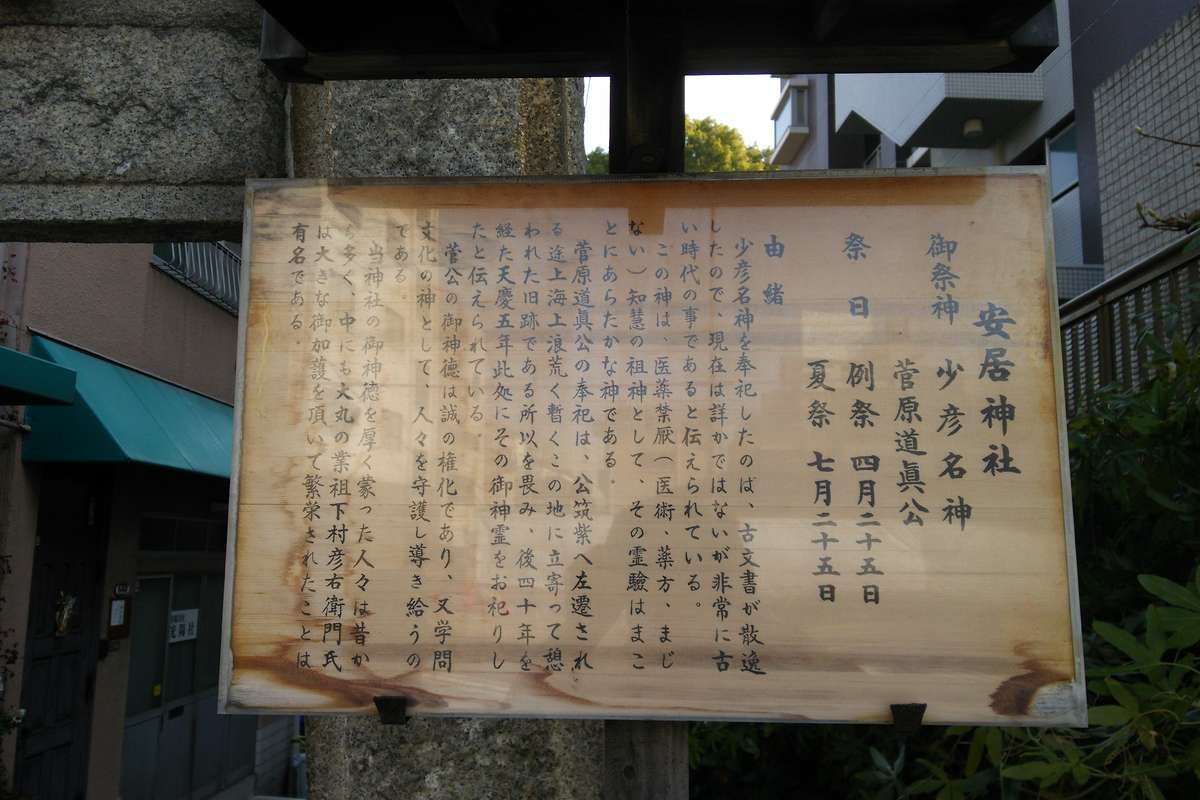 安居神社
御祭神 少彦名神
菅原道眞公
祭日 例祭 四月二十五日
夏祭 七月二十五日
由緒
少彦名神を奉祀したのは、古文書が散逸
したので、現在は詳かではないが非常に古
い時代の事であると伝えられている。
この神は、医薬禁厭（医術、薬方、まじ
ない）知慧の祖神として、その霊驗はまこ
とにあらたかな神である。
菅原道眞公の奉祀は、公筑紫へ左遷され
る途上海上浪荒く暫くこの地に立寄って憩
われた旧跡である所以を畏み、後四十年を
経た天慶五年此処にその御神霊をお祀りし
たと伝えられている。
菅公の御神徳は誠の権化であり、又学問
文化の神として、人々を守護し導き給うの
である。
当神社の御神徳を厚く蒙った人々は昔か
ら多く、中にも大丸の業祖下村彦右衛門氏
は大きな御加護を頂いて繁栄されたことは
有名である。